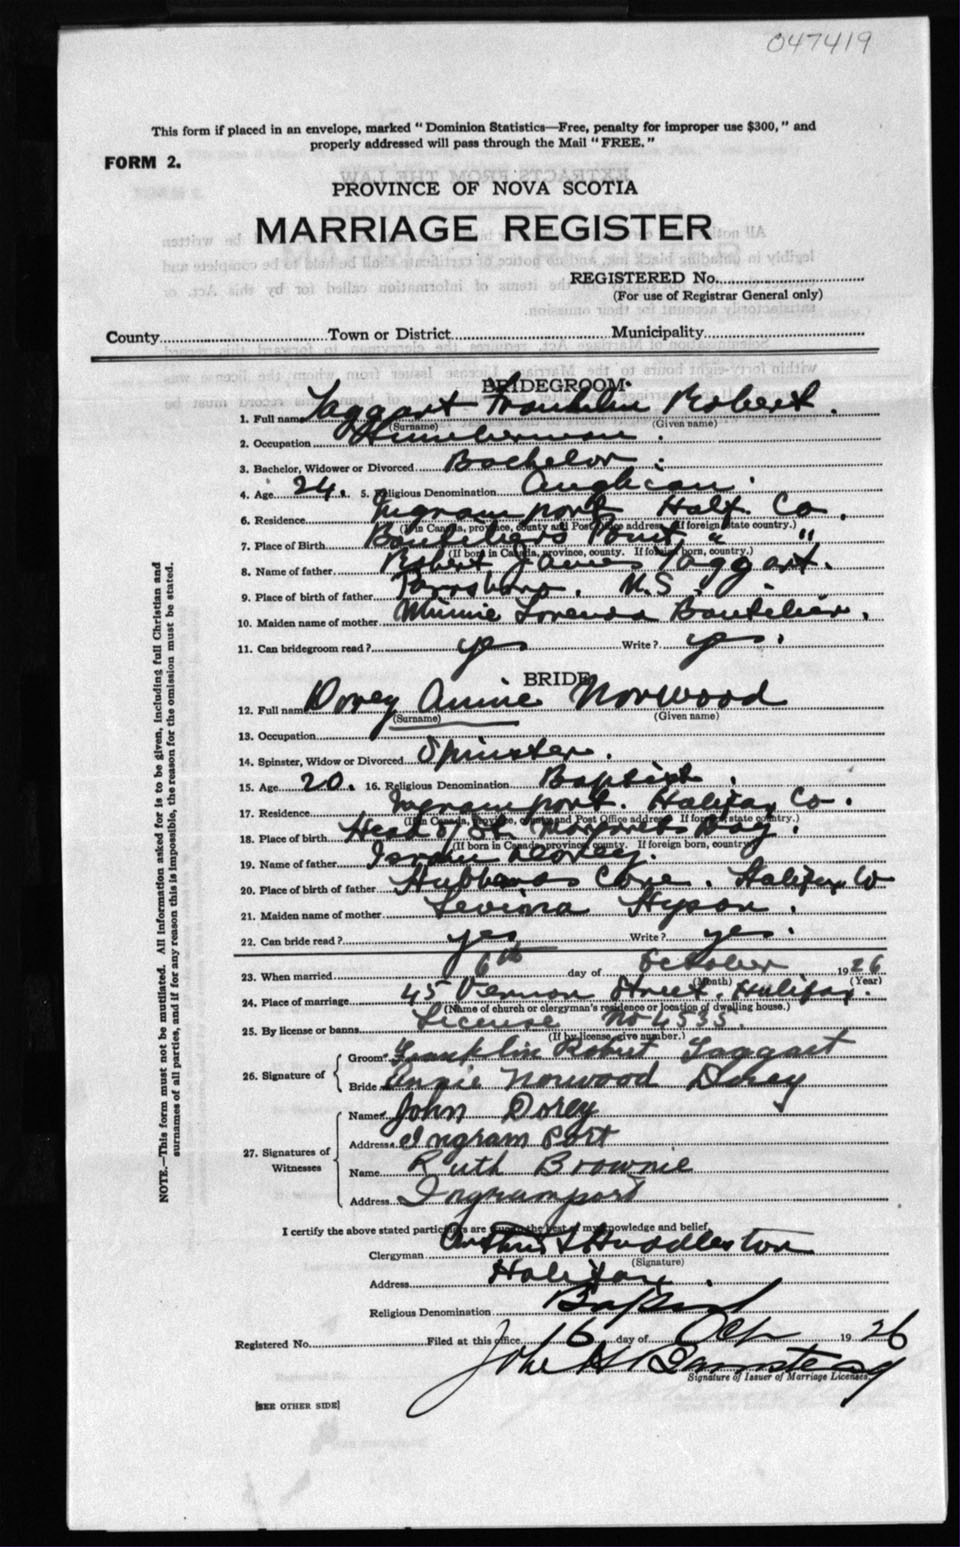 047419
This form if placed in an envelope, marked "Dominion Statistics—Free, penalty for improper use $300," and
properly addressed will pass through the Mail "FREE."
FORM 2.
PROVINCE OF NOVA SCOTIA
MARRIAGE REGISTER
REGISTERED No.
(For use of Registrar General only)
County Town or District Municipality
BRIDEGROOM
1. Full name Taggart Franklin Robert.
(Surname) (Given name)
2. Occupation
3. Bachelor, Widower or Divorced Bachelor
4. Age 24. 5. Religious Denomination Anglican.
6. Residence Ingramport Halfx Co.
(If in Canada, province, county and Post Office address. If foreign, state country.)
7. Place of Birth Boutiliers Point " "
(If born in Canada, province, county. If foreign born, country.)
8. Name of father Robert James Taggart.
9. Place of birth of father Parrsboro. N.S.
10. Maiden name of mother Minnie Lorenda Boutilier.
11. Can bridegroom read? yes Write? yes.
BRIDE
12. Full name Dorey Annie Norwood
(Surname) (Given name)
13. Occupation
14. Spinster, Widow or Divorced Spinster.
15. Age 20. 16. Religious Denomination Baptist.
17. Residence Ingramport. Halifax Co.
(If in Canada, province, county and Post Office address. If foreign, state country.)
18. Place of birth Head of St. Margarets Bay.
(If born in Canada, province, county. If foreign born, country)
19. Name of father Dorey.
20. Place of birth of father Hubbards Cove. Halifax Co
21. Maiden name of mother Levina Hyson.
22. Can bride read? yes Write? yes.
23. When married 6th day of October 1926
(Month) (Year)
24. Place of marriage 45 Vernon Street. Halifax.
(Name of church or clergyman's residence or location of dwelling house.)
25. By license or banns License No 4535.
(If by license, give number.)
26. Signature of Groom Franklin Robert Taggart
Bride Angie Norwood Dorey
27. Signatures of Witnesses
Name John Dorey
Address Ingram Port
Name Ruth Brownie
Address Ingramport
I certify the above stated particulars are true to the best of my knowledge and belief,
Clergyman Huddleston
(Signature)
Address Halifax
Religious Denomination Baptist
Registered No. Filed at this office 16 day of Oct 1926
John H
Signature of Issuer of Marriage Licenses.
[SEE OTHER SIDE]
NOTE.—This form must not be mutilated. All information asked for is to be given, including full Christian and
surnames of all parties, and if for any reason this is impossible, the reason for the omission must be stated.